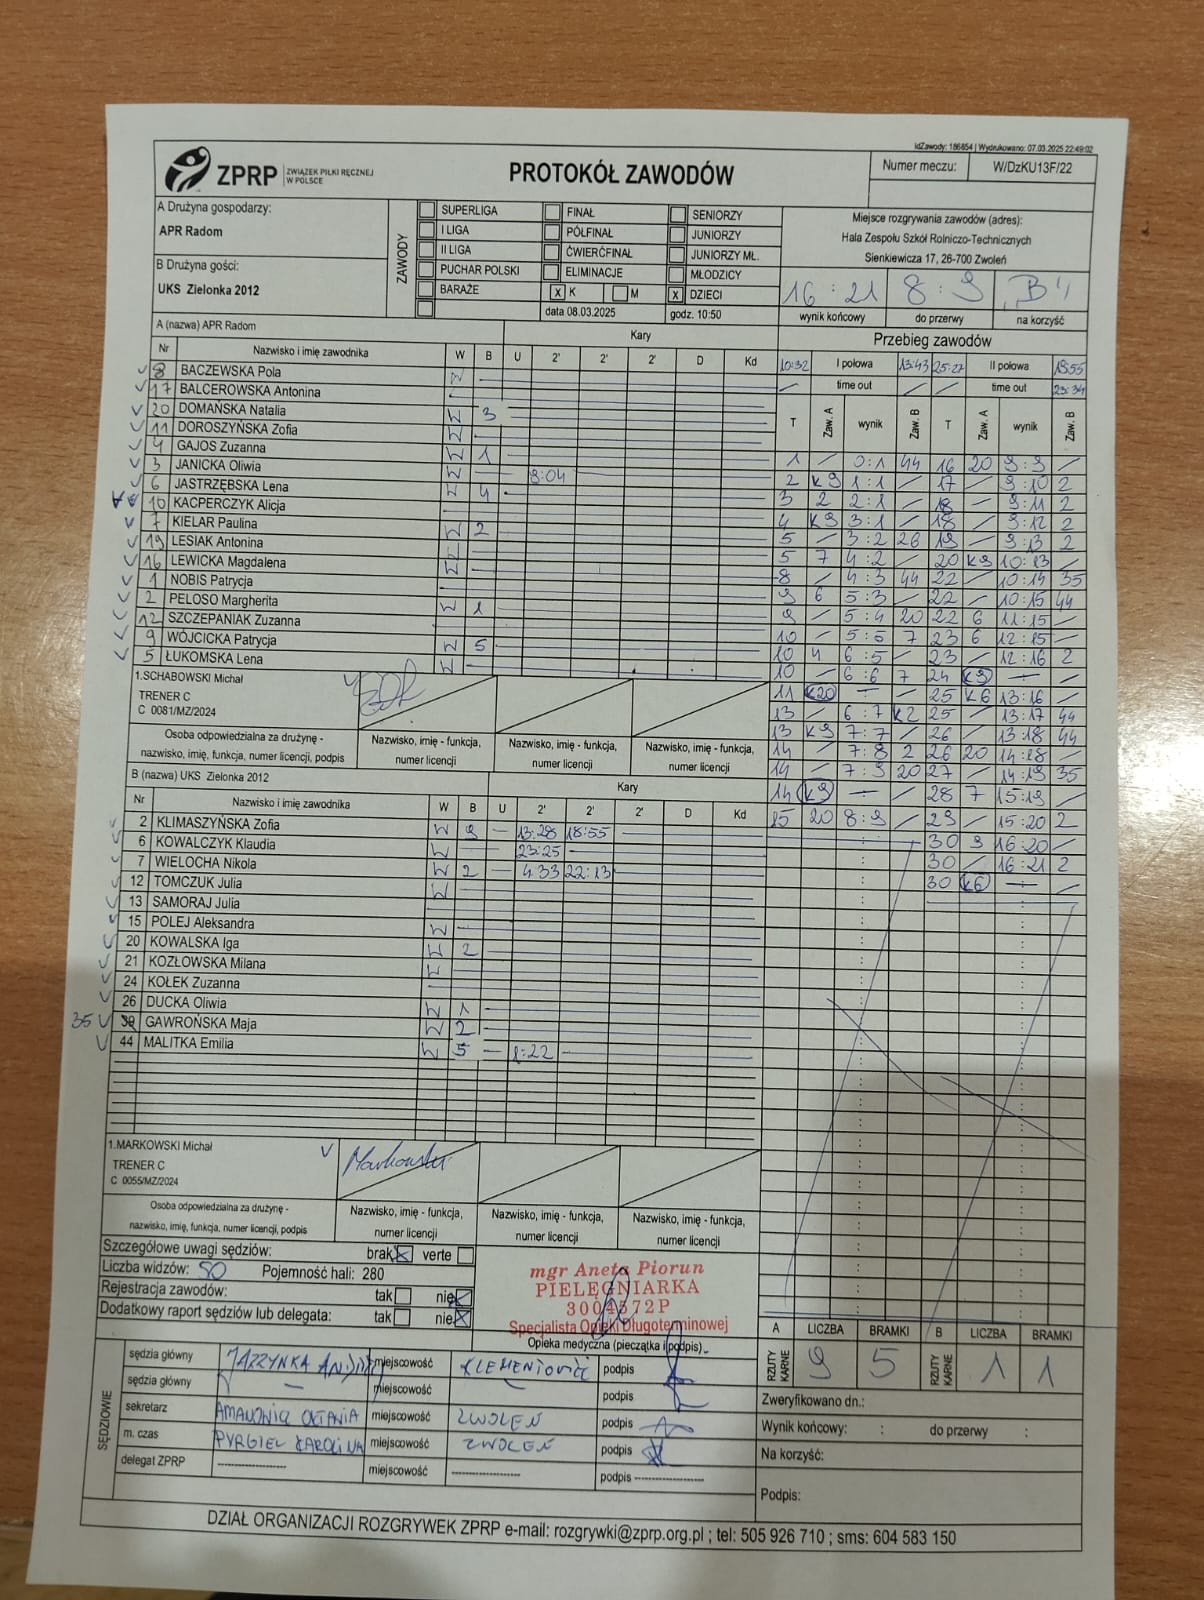 IdZawody: 186854 | Wydrukowano: 07.03.2025 22:49:02
ZPRP ZWIĄZEK PIŁKI RĘCZNEJ W POLSCE
PROTOKÓŁ ZAWODÓW
Numer meczu: W/DzKU13F/22
A Drużyna gospodarzy:
APR Radom
B Drużyna gości:
UKS Zielonka 2012
ZAWODY
SUPERLIGA FINAŁ SENIORZY
I LIGA PÓŁFINAŁ JUNIORZY
II LIGA ĆWIERĆFINAŁ JUNIORZY MŁ.
PUCHAR POLSKI ELIMINACJE MŁODZICY
BARAŻE x K M x DZIECI
data 08.03.2025 godz. 10:50
Miejsce rozgrywania zawodów (adres):
Hala Zespołu Szkół Rolniczo-Technicznych
Sienkiewicza 17, 26-700 Zwoleń
16 : 21 8 : 9 "B"
wynik końcowy do przerwy na korzyść
A (nazwa) APR Radom Kary
Nr Nazwisko i imię zawodnika W B U 2' 2' 2' D Kd
8 BACZEWSKA Pola W
17 BALCEROWSKA Antonina
20 DOMAŃSKA Natalia W 3
11 DOROSZYŃSKA Zofia W
4 GAJOS Zuzanna W 1
3 JANICKA Oliwia W 8:04
6 JASTRZĘBSKA Lena W 4
10 KACPERCZYK Alicja
7 KIELAR Paulina W 2
19 LESIAK Antonina W
16 LEWICKA Magdalena W
1 NOBIS Patrycja
2 PELOSO Margherita W 1
12 SZCZEPANIAK Zuzanna
9 WÓJCICKA Patrycja W 5
5 ŁUKOMSKA Lena W
1.SCHABOWSKI Michał
TRENER C
C 0081/MZ/2024
Osoba odpowiedzialna za drużynę - nazwisko, imię, funkcja, numer licencji, podpis
Nazwisko, imię - funkcja, numer licencji
Nazwisko, imię - funkcja, numer licencji
Nazwisko, imię - funkcja, numer licencji
B (nazwa) UKS Zielonka 2012 Kary
Nr Nazwisko i imię zawodnika W B U 2' 2' 2' D Kd
2 KLIMASZYŃSKA Zofia W 9 13:28 18:55
6 KOWALCZYK Klaudia W 23:25
7 WIELOCHA Nikola W 2 4:33 22:13
12 TOMCZUK Julia W
13 SAMORAJ Julia
15 POLEJ Aleksandra W
20 KOWALSKA Iga W 2
21 KOZŁOWSKA Milana W
24 KOŁEK Zuzanna
26 DUCKA Oliwia W 1
35 GAWROŃSKA Maja W 2
44 MALITKA Emilia W 5 1:22
1.MARKOWSKI Michał
TRENER C
C 0055/MZ/2024
Markowski
Osoba odpowiedzialna za drużynę - nazwisko, imię, funkcja, numer licencji, podpis
Nazwisko, imię - funkcja, numer licencji
Nazwisko, imię - funkcja, numer licencji
Nazwisko, imię - funkcja, numer licencji
Przebieg zawodów
10:32 I połowa 13:43 25:27 II połowa
time out time out 23:34
T Zaw. A wynik Zaw. B T Zaw. A wynik Zaw. B
1 / 0:1 44 16 20 9:9 /
2 K9 1:1 / 17 / 9:10 2
3 2 2:1 / 18 / 9:11 2
4 K9 3:1 / 18 / 9:12 2
5 / 3:2 26 19 / 9:13 2
5 7 4:2 / 20 K9 10:13 /
8 / 4:3 44 22 / 10:14 35
9 6 5:3 / 22 / 10:15 44
9 / 5:4 20 22 6 11:15 /
10 / 5:5 7 23 6 12:15 /
10 4 6:5 / 23 / 12:16 2
10 / 6:6 7 24 K9 — /
11 K20 — / 25 K6 13:16 /
13 / 6:7 K2 25 / 13:17 44
13 K9 7:7 / 26 / 13:18 44
14 / 7:8 2 26 20 14:18 /
14 / 7:9 20 27 / 14:19 35
14 K9 — / 28 7 15:19 /
15 20 8:9 / 29 / 15:20 2
30 9 16:20 /
30 / 16:21 2
30 K6 — /
Szczegółowe uwagi sędziów: brak verte
Liczba widzów: 50 Pojemność hali: 280
Rejestracja zawodów: tak nie
Dodatkowy raport sędziów lub delegata: tak nie
mgr Aneta Piorun
PIELĘGNIARKA
3004372P
Specjalista Opieki Długoterminowej
Opieka medyczna (pieczątka i podpis)
A LICZBA BRAMKI B LICZBA BRAMKI
RZUTY KARNE 9 5 RZUTY KARNE 1 1
SĘDZIOWIE
sędzia główny miejscowość podpis
sędzia główny — miejscowość podpis
sekretarz miejscowość ZWOLEŃ podpis
m. czas PYRGIEL KAROLINA miejscowość ZWOLEŃ podpis
delegat ZPRP miejscowość podpis
Zweryfikowano dn.:
Wynik końcowy: : do przerwy :
Na korzyść:
Podpis:
DZIAŁ ORGANIZACJI ROZGRYWEK ZPRP e-mail: rozgrywki@zprp.org.pl ; tel: 505 926 710 ; sms: 604 583 150